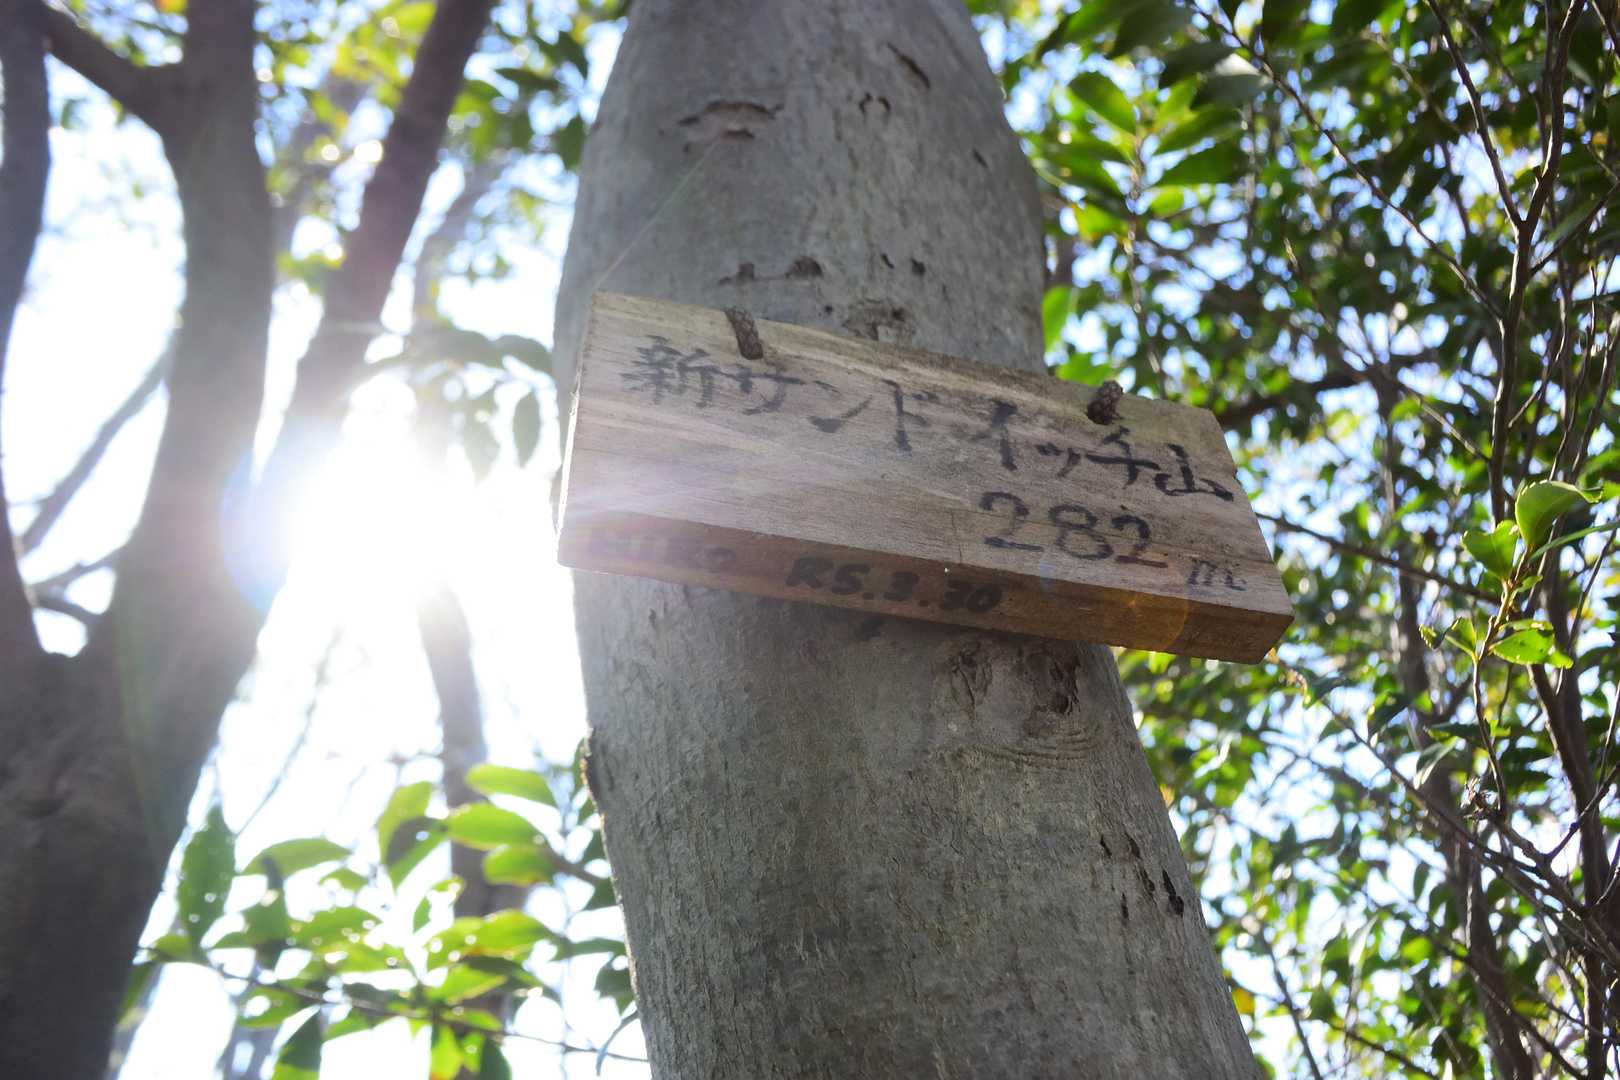 新サンドイッチ山
282m
HIRO R5.3.30